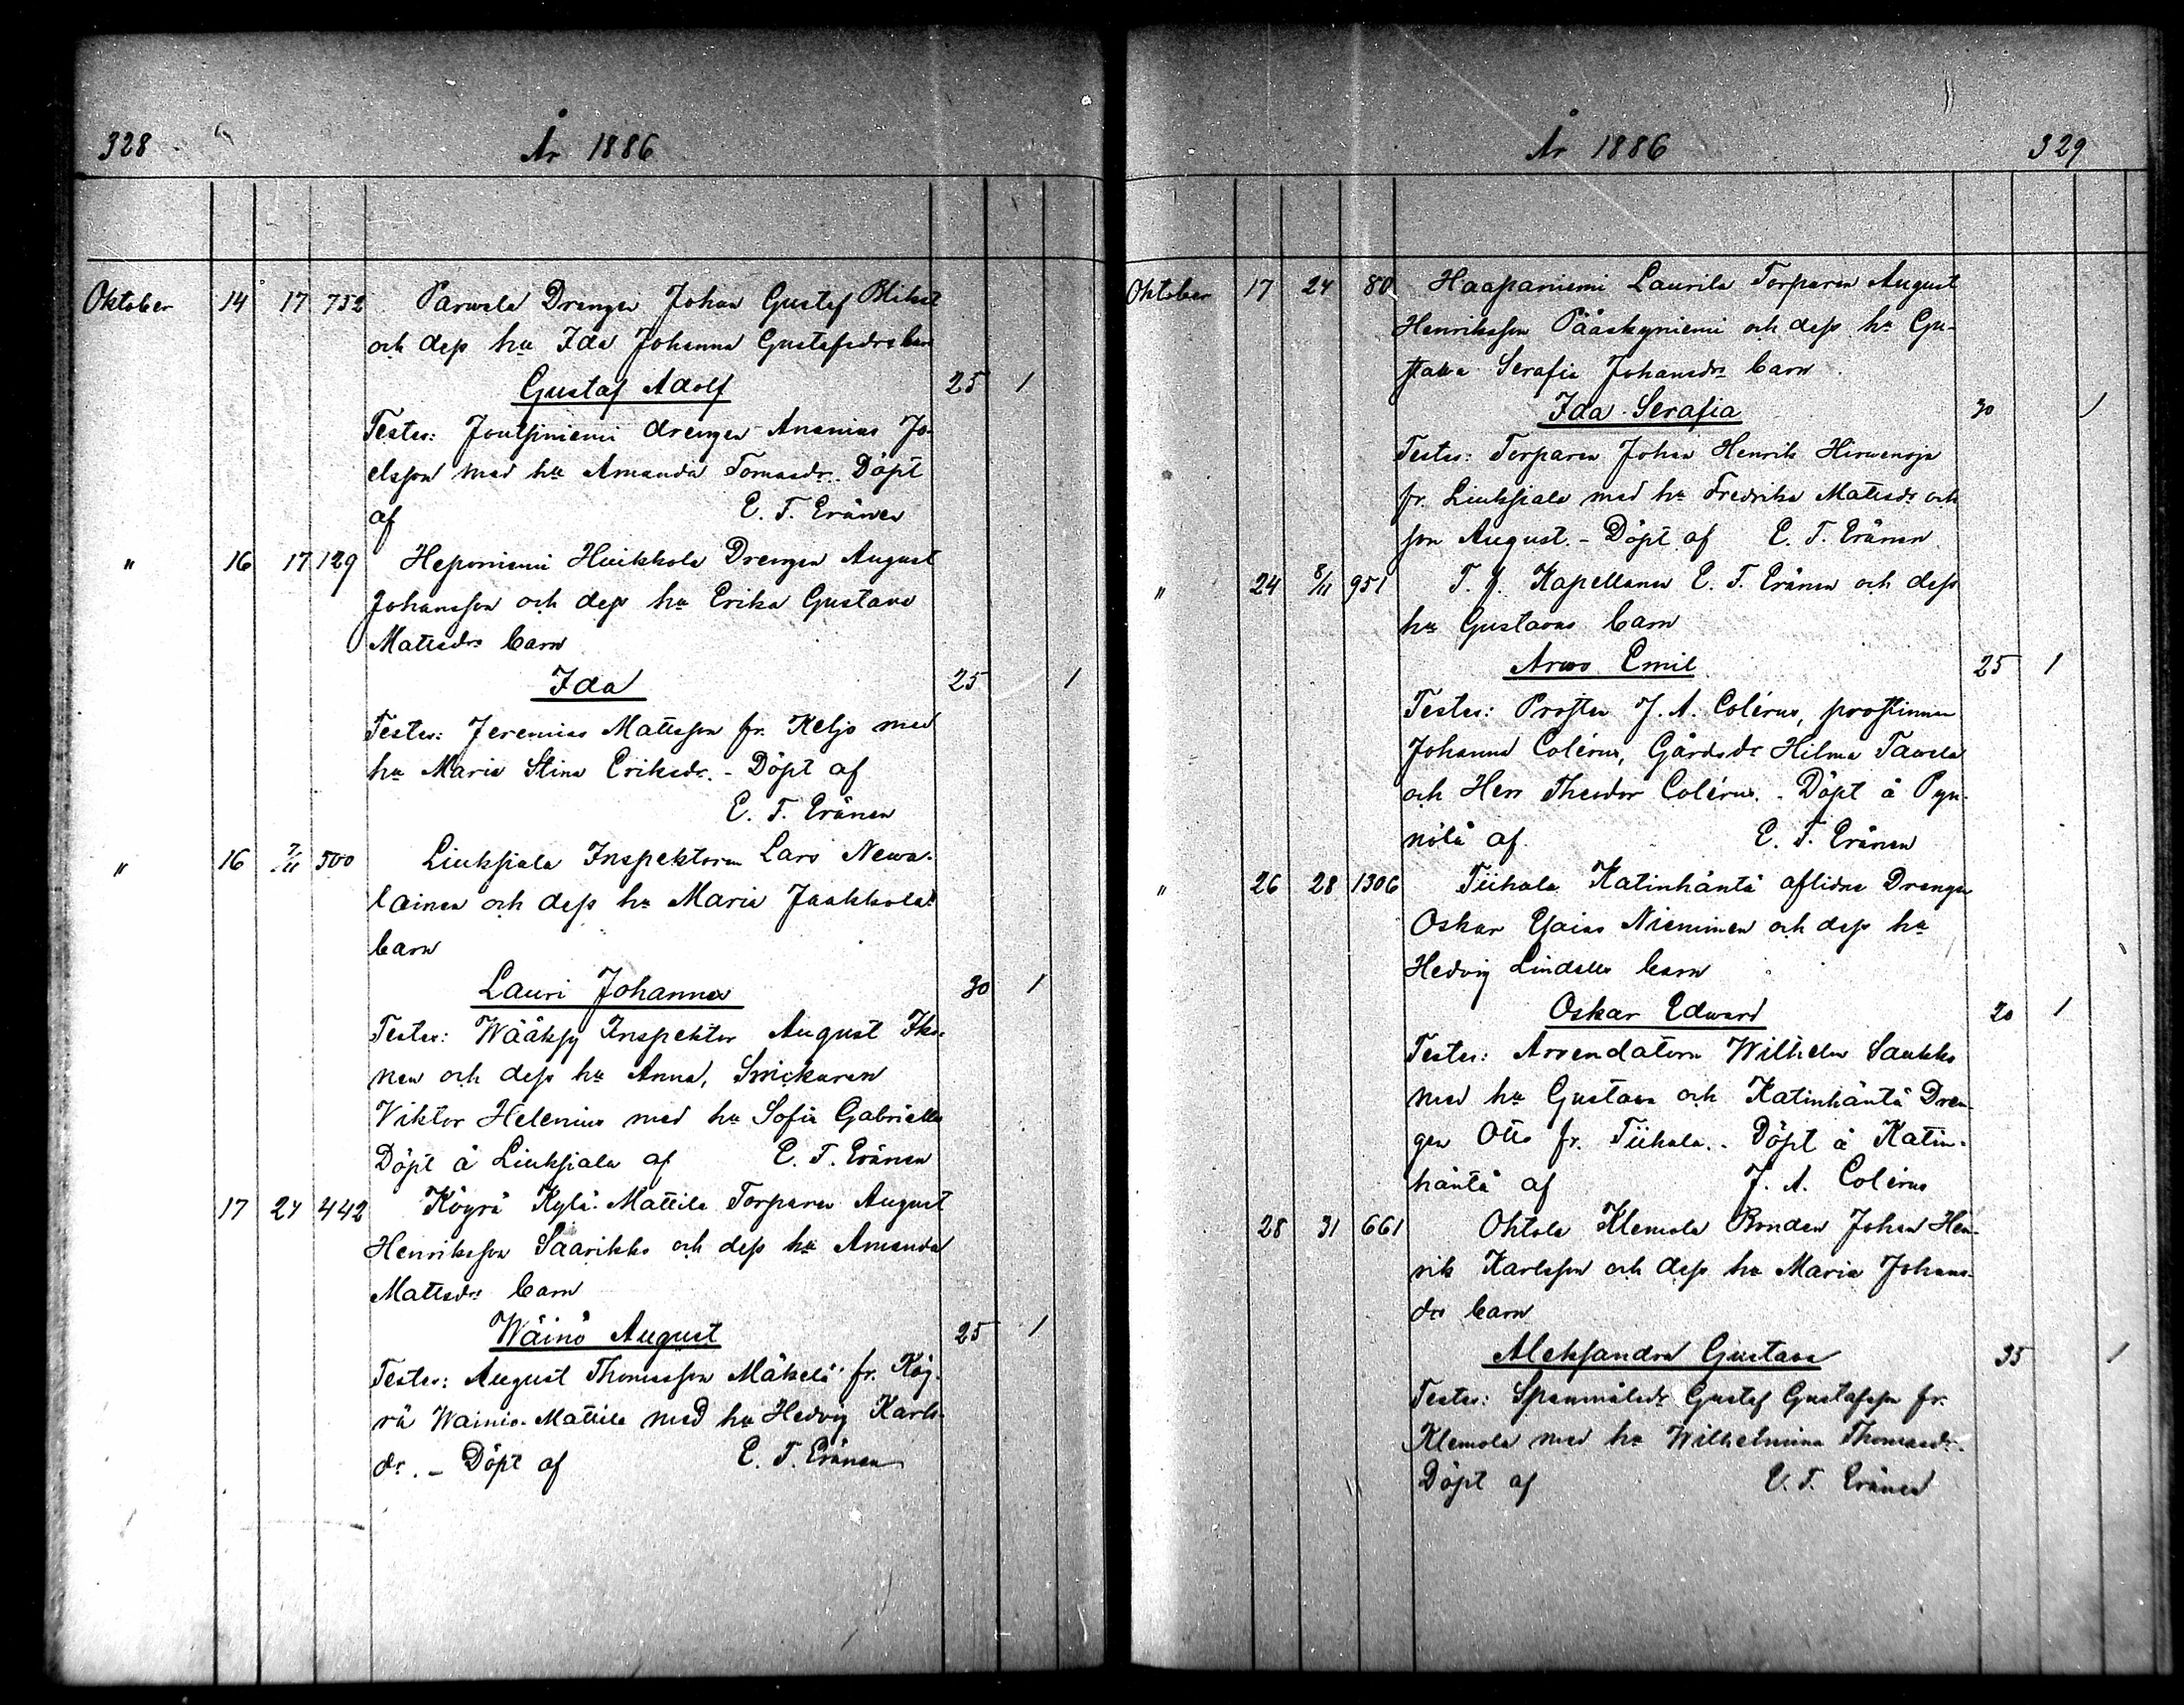 328
År 1886
Oktober 14 17 732 Parvela Drengen Johan Gustaf Blikst
och dess hu Ida Johanna Gustafsdrs barn
Gustaf Adolf 25 1
Testes: Joutsiniemi drengen Ananias Jo-
elsson med hu Amanda Tomasdr. Döpt
af E. T. Eränen
" 16 17 129 Heponiemi Huikkola Drengen August
Johansson och dess hu Erika Gustava
Mattsdrs barn
Ida 25 1
Testes: Jeremias Mattsson fr. Keljo med
hu Maria Stina Eriksdr. - Döpt af
E. T. Eränen
" 16 7/11 500 Liuksiala Inspektoren Lars Newa-
lainen och dess hu Maria Jaakkolas
barn
Lauri Johannes 30 1
Testes: Wääksy Inspektor August Iko-
nen och dess hu Anna, Snickaren
Viktor Helenius med hu Sofia Gabriella
Döpt å Liuksiala af E. T. Eränen
17 24 442 Köyrä Kylä-Mattila Torparen August
Henriksson Saarikko och dess hu Amanda
Mattsdrs barn
Wäinö August 25 1
Testes: August Thomasson Mäkelä fr. Köy-
rä Wainio-Mattila med hu Hedvig Karls-
dr. - Döpt af E. T. Eränen
År 1886
329
Oktober 17 24 80 Haapaniemi Laurila Torparen August
Henriksson Pääskyniemi och dess hu Gu-
stava Serafia Johansdrs barn
Ida Serafia 30 1
Testes: Torparen Johan Henrik Hirwenoja
fr. Liuksiala med hu Fredrika Mattsdr och
son August. - Döpt af E. T. Eränen
" 24 8/11 951 T. f. Kapellanen E. T. Eränen och dess
hu Gustavas barn
Arvo Emil 25 1
Testes: Prosten J. A. Colérus, prostinnan
Johanna Colérus, Gårdsdr Hilma Tavela
och Herr Theodor Colérus. - Döpt å Pyn-
nölä af E. T. Eränen
" 26 28 1306 Tiihala Katinhäntä aflidne Drengen
Oskar Esaias Nieminen och dess hu
Hedvig Lindells barn
Oskar Edward 20 1
Testes: Arrendatorn Wilhelm Saukko
med hu Gustava och Katinhäntä Dren-
gen Otto fr. Tiihala. - Döpt å Katin-
häntä af J. A. Colérus
28 31 661 Ohtola Klemola Bonden Johan Hen-
rik Karlsson och dess hu Maria Johans-
drs barn
Aleksandra Gustava 35 1
Testes: Spannmålsdr Gustaf Gustafsson fr.
Klemola med hu Wilhelmina Thomasdr.
Döpt af E. T. Eränen